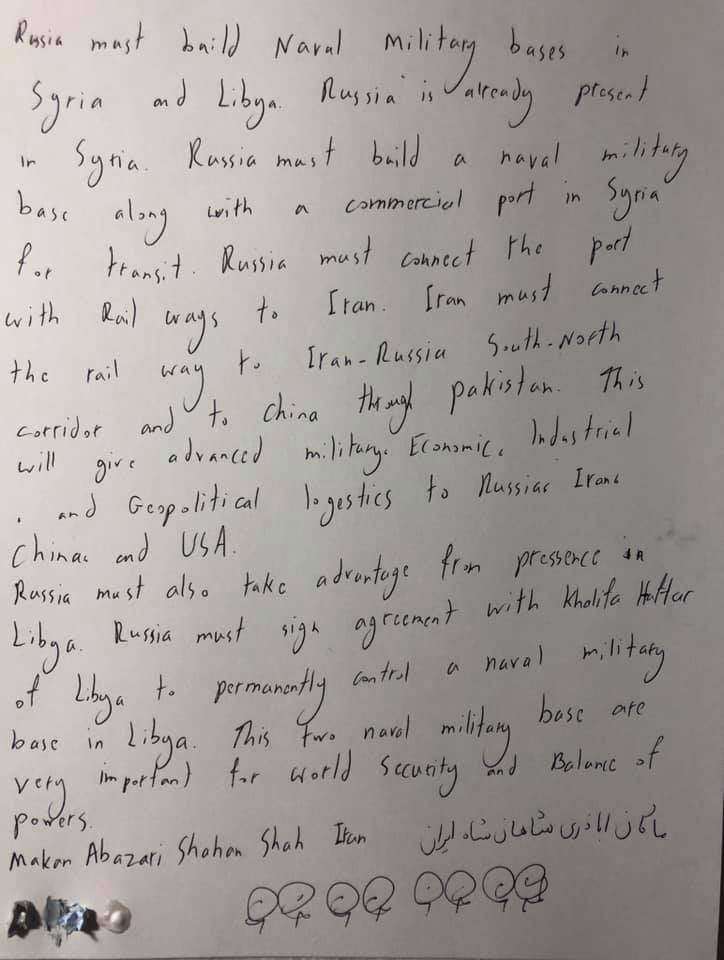 Russia must build Naval Military bases in
Syria and Libya. Russia is already present
in Syria. Russia must build a naval military
base along with a commercial port in Syria
for transit. Russia must connect the port
with Rail ways to Iran. Iran must connect
the rail way to Iran-Russia South-North
corridor and to China through pakistan. This
will give advanced military, Economic, Industrial
, and Geopolitical logestics to Russia, Iran,
China, and USA.
Russia must also take advantage from pressence in
Libya. Russia must sign agreement with Khalifa Haftar
of Libya to permanently control a naval military
base in Libya. This two naval military base are
very important for world Security and Balance of
powers.
Makan Abazari Shahan Shah Iran ماکان اباذری شاهان شاه ایران